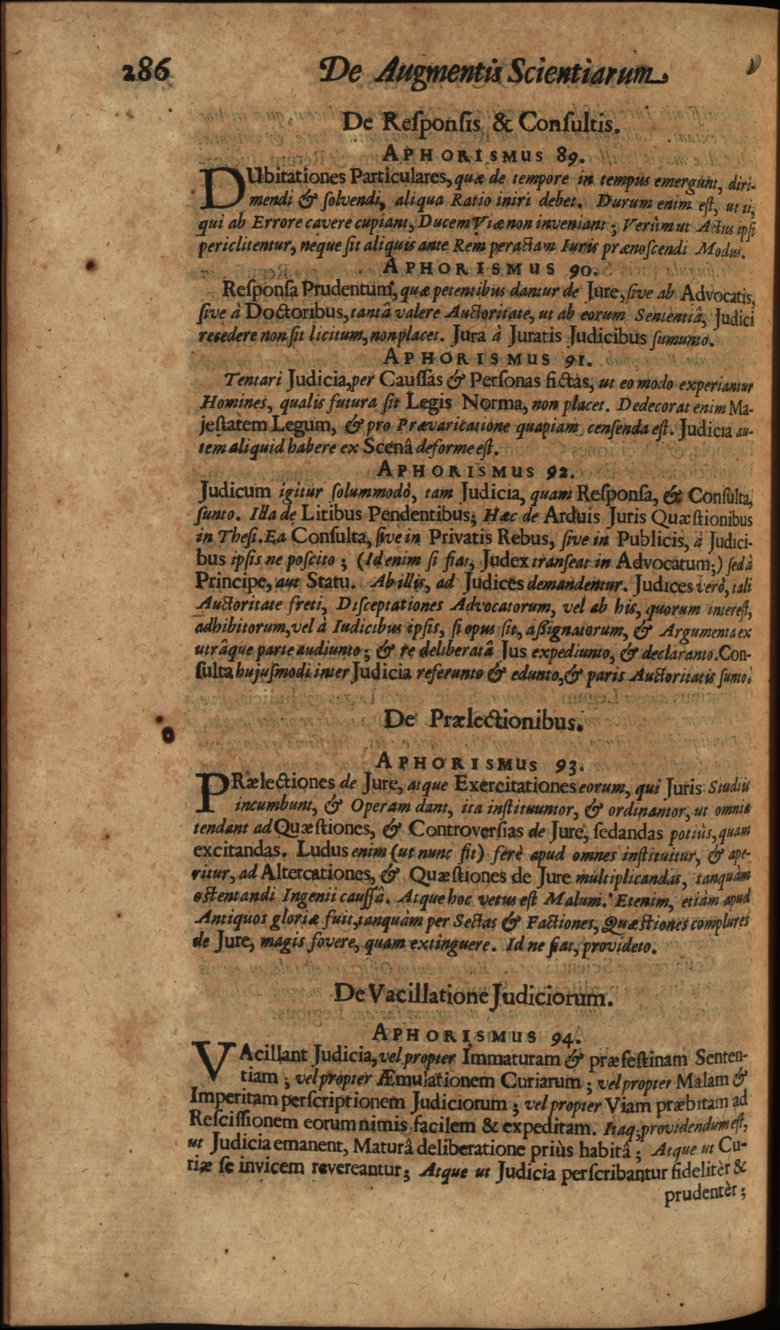 286 De Augmentis Scientiarum
De Responsis, & Consultis.
APHORISMUS 89.
DUbitationes Particulares, quæ de tempore in tempus emergunt, diri-
mendi & solvendi, aliqua Ratio iniri debet. Durum enim est, ut ii,
qui ab Errore cavere cupiant, Ducem Viæ non inveniant; Verùm ut Actus ipsi
periclitentur, neque sit aliquis ante Rem peractam Iuris prænoscendi Modus.
APHORISMUS 90.
Responsa Prudentum, quæ petentibus dantur de Jure, sive ab Advocatis,
sive à Doctoribus, tantâ valere Auctoritate, ut ab eorum Sententiâ, Judici
recedere non sit licitum, non placet. Jura à Juratis Judicibus sumunto.
APHORISMUS 91.
Tentari Judicia, per Caussas & Personas fictas, ut eo modo experiantur
Homines, qualis futura sit Legis Norma, non placet. Dedecorat enim Ma-
jestatem Legum, & pro Prævaricatione quapiam censenda est. Judicia au-
tem aliquid habere ex Scenâ deforme est.
APHORISMUS 92.
Judicum igitur solummodò, tam Judicia, quam Responsa, & Consulta,
sunto. Illa de Litibus Pendentibus; Hæc de Arduis Juris Quæstionibus
in Thesi. Ea Consulta, sive in Privatis Rebus, sive in Publicis, à Judici-
bus ipsis ne poscito; (Id enim si fiat, Judex transeat in Advocatum;) sed à
Principe, aut Statu. Ab illis, ad Judices demandentur. Judices verò, tali
Auctoritate freti, Disceptationes Advocatorum, vel ab his, quorum interest,
adhibitorum, vel à Iudicibus ipsis, si opus sit, assignatorum, & Argumenta ex
utrâque parte audiunto; & re deliberatâ Jus expediunto, & declaranto. Con-
sulta hujusmodi inter Judicia referunto & edunto, & paris Auctoritatis sunto.
De Prælectionibus.
APHORISMUS 93.
PRælectiones de Jure, atque Exercitationes eorum, qui Juris Studiis
incumbunt, & Operam dant, ita instituuntor, & ordinantor, ut omnia
tendant ad Quæstiones, & Controversias de Jure, sedandas potiùs, quam
excitandas. Ludus enim (ut nunc fit) ferè apud omnes instituitur, & ape-
ritur, ad Altercationes, & Quæstiones de Jure multiplicandas, tanquàm
ostentandi Ingenii caussâ. Atque hoc vetus est Malum. Etenim, etiàm apud
Antiquos gloriæ fuit, tanquàm per Sectas & Factiones, Quæstiones complures
de Jure, magis fovere, quam extinguere. Id ne fiat, provideto.
De Vacillatione Judiciorum.
APHORISMUS 94.
VAcillant Judicia, vel propter Immaturam & præfestinam Senten-
tiam; vel propter Æmulationem Curiarum; vel propter Malam &
Imperitam perscriptionem Judiciorum; vel propter Viam præbitam ad
Rescissionem eorum nimis facilem & expeditam. Itaq; providendum est,
ut Judicia emanent, Maturâ deliberatione priùs habitâ; Atque ut Cu-
riæ se invicem revereantur; Atque ut Judicia perscribantur fidelitèr &
prudentèr;